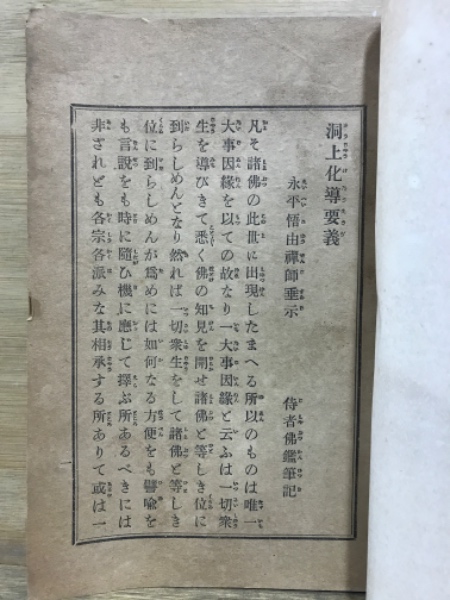 洞上化導要義
永平悟由禪師垂示
侍者佛鑑筆記
凡そ諸佛の此世に出現したまへる所以のものは唯一
大事因緣を以ての故なり一大事因緣と云ふは一切衆
生を導びきて悉く佛の知見を開せ諸佛と等しき位に
到らしめんとなり然れば一切衆生をして諸佛と等しき
位に到らしめんが爲めには如何なる方便をも譬喩を
も言說をも時に隨ひ機に應じて擇ぶ所あるべきには
非されども各宗各派みな其相承する所ありて或は一